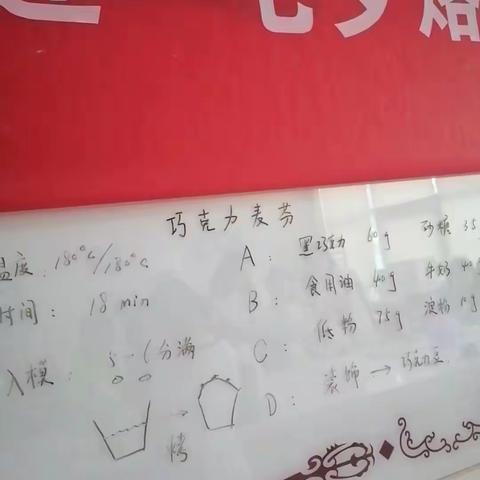 七夕
巧克力麦芬
温度: 180°C/180°C
时间: 18 min
入模: 分满
烤
A: 黑巧克力 60g 砂糖 35
B: 食用油 40g 牛奶 40g
C: 低粉 75g 淀粉
D: 装饰 → 巧克力豆